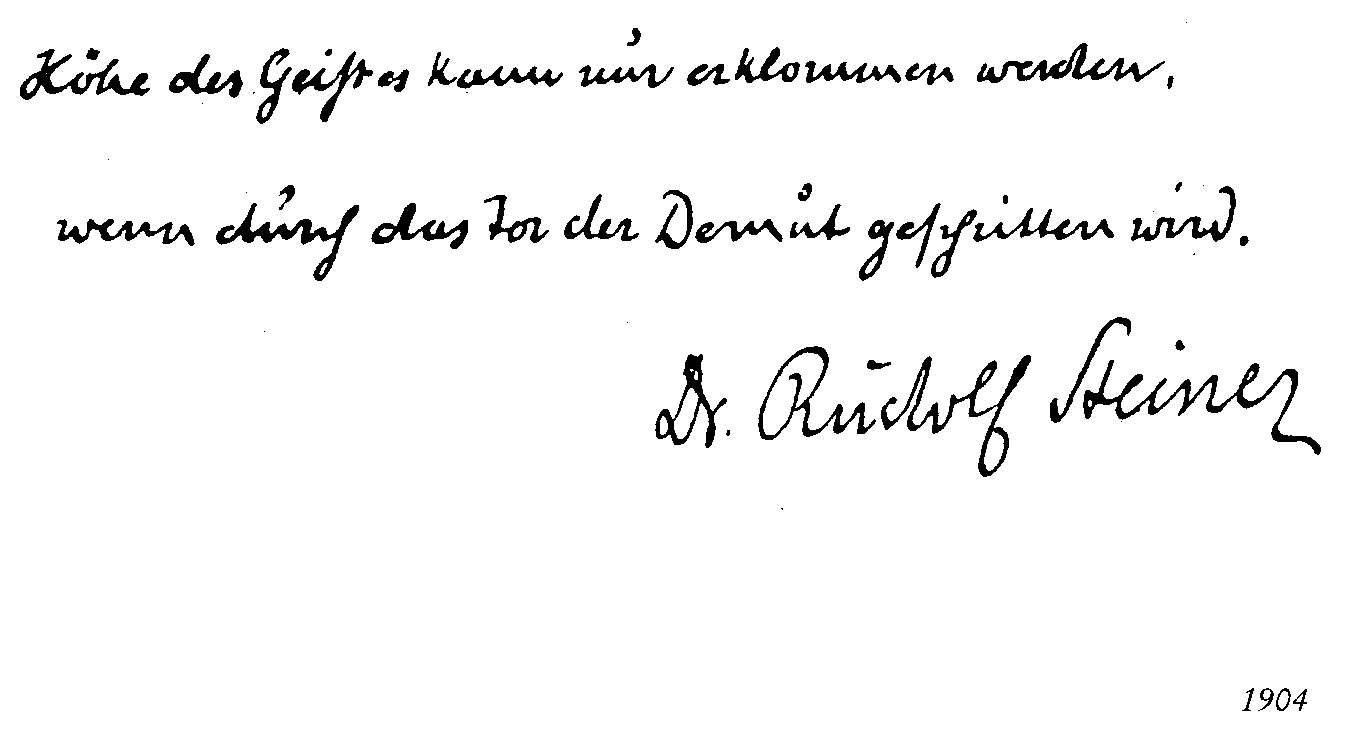 Höhe des Geistes kann nur erklommen werden,
wenn durch das Tor der Demut geschritten wird.
Dr. Rudolf Steiner
1904